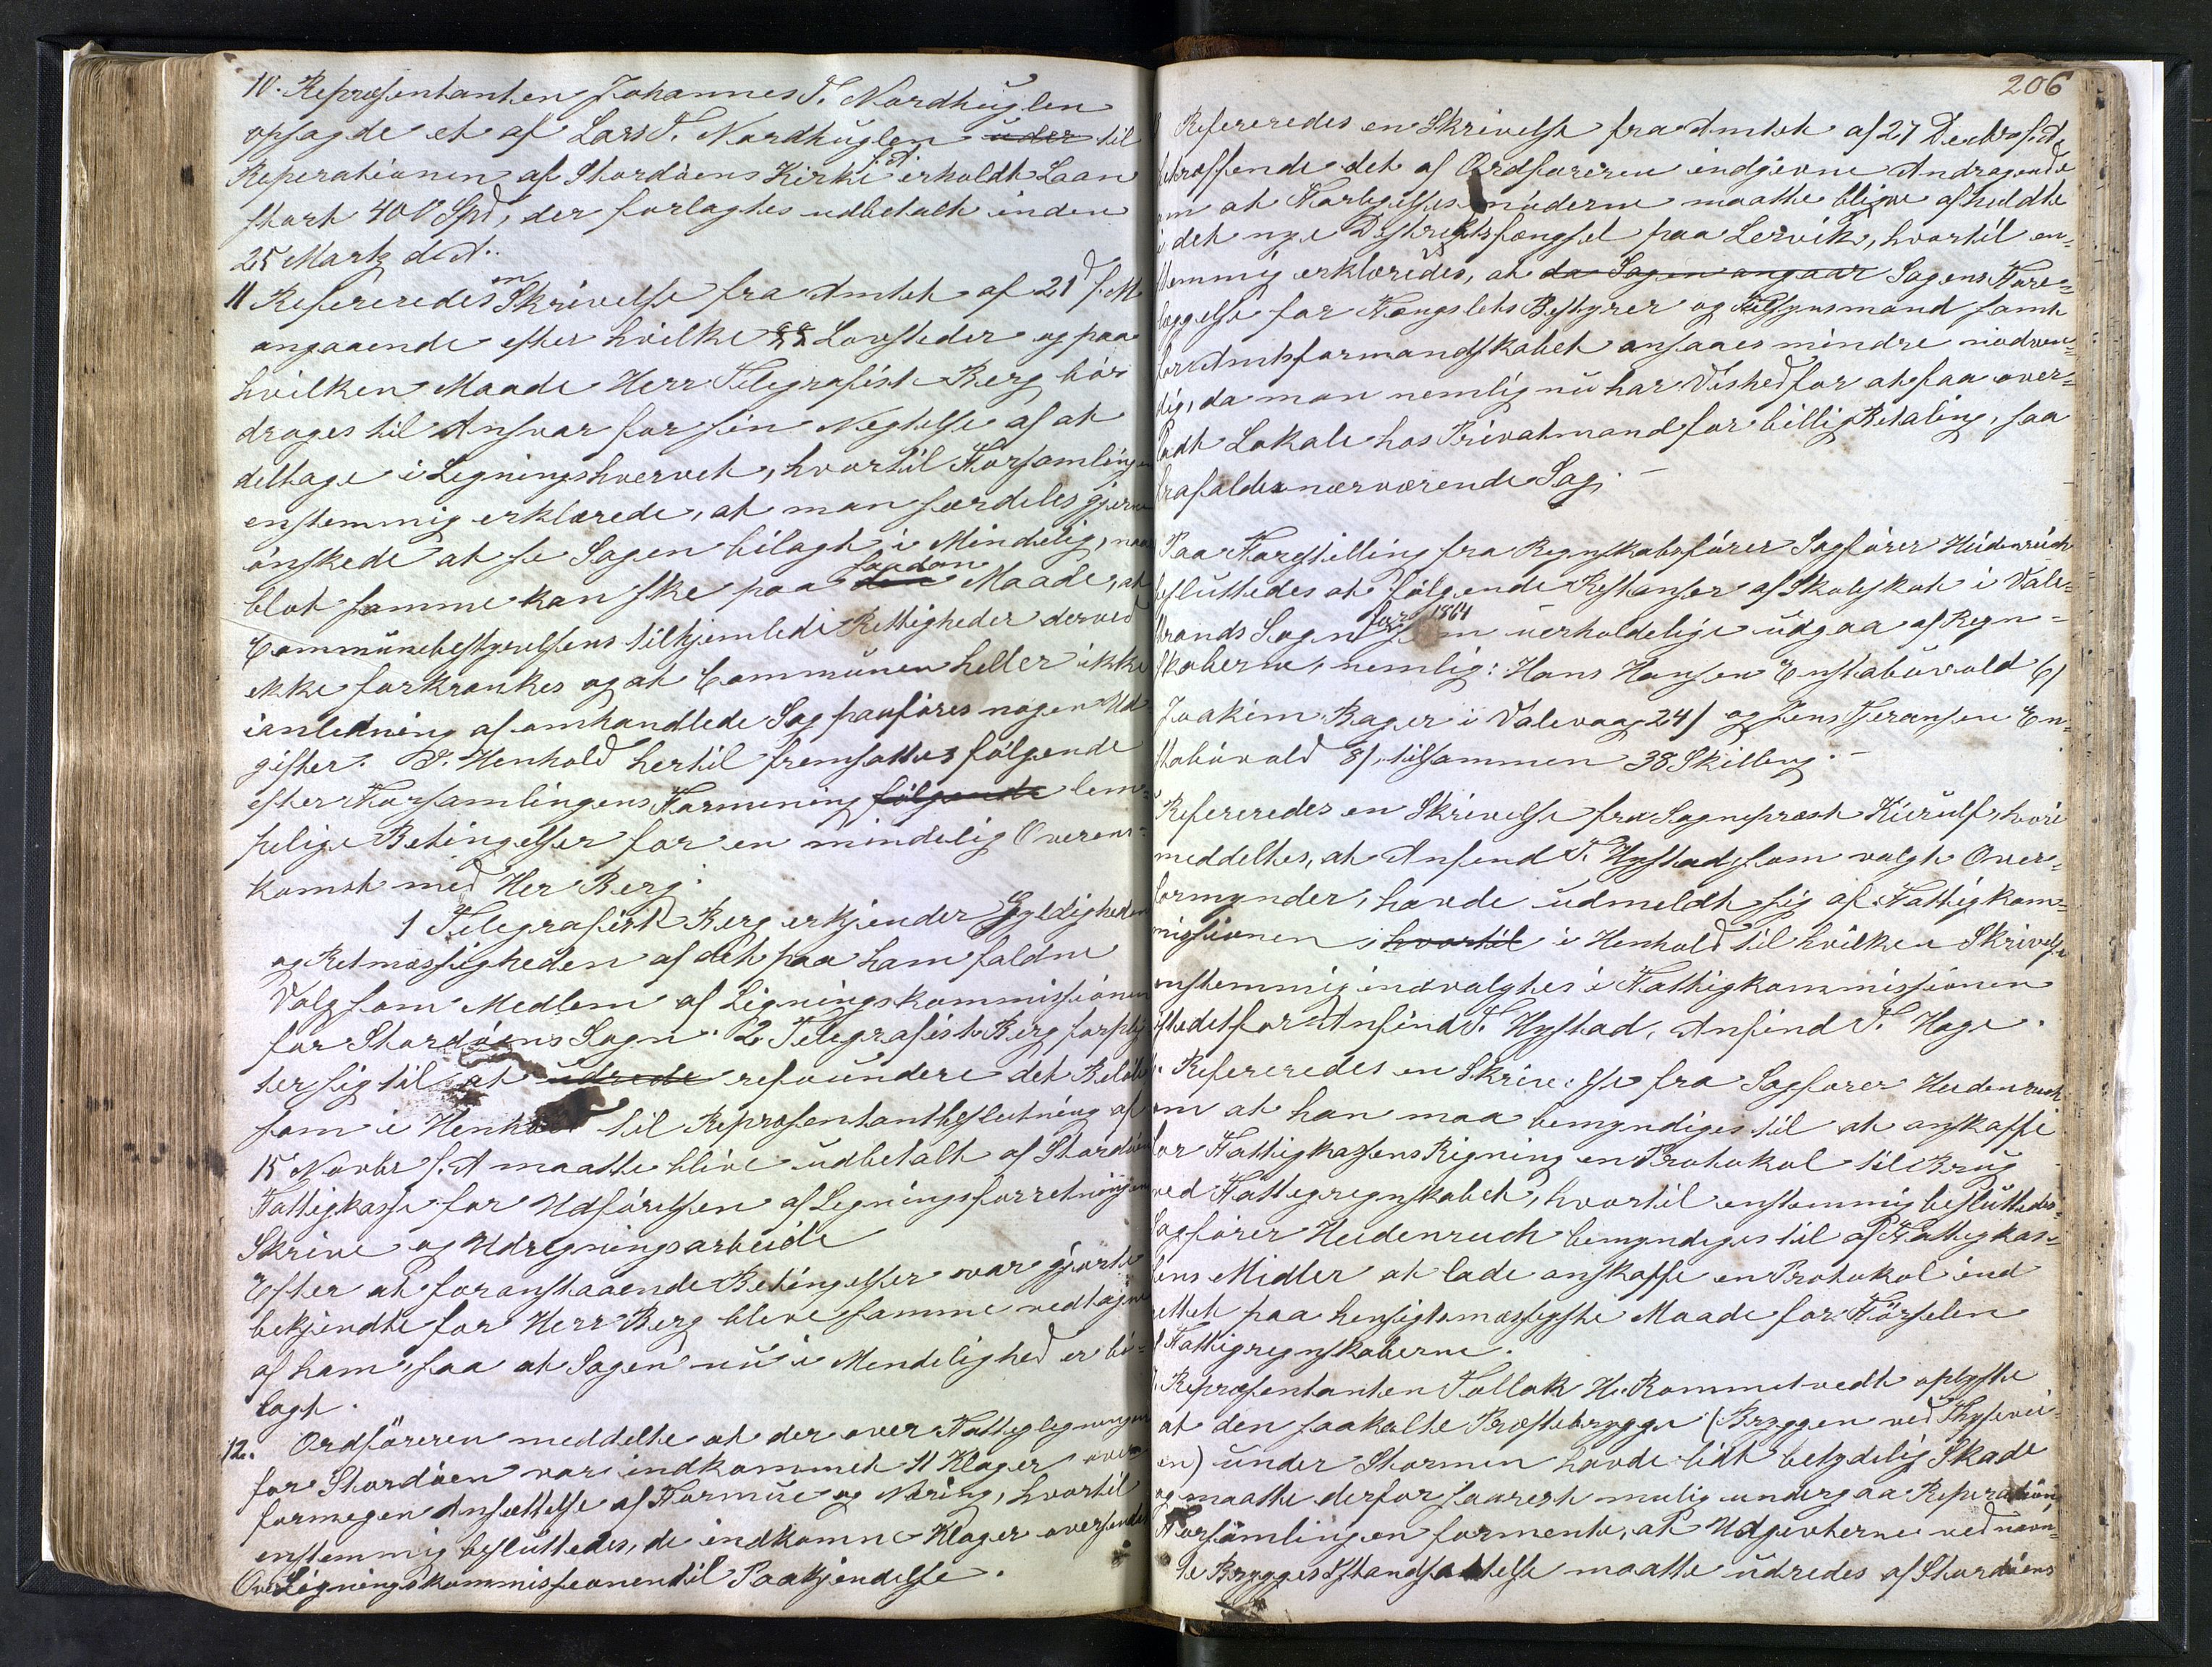 10. Repræsentanten Johannes T. Nordhuglen
opsagde et af Lars T. Nordhuglen uder til
Reperationen af Stordøens Kirke f. A. erholdt Laan
stort 400 Spd, der forlagtes udbetalt inden
25 Marts d. A..
11 Refereredes en Skrivelse fra Amtet af 21d f. M
angaaende efter hvilke §§ Lovsteder og paa
hvilken Maade Herr Telegrafist Berg bør
drages til Ansvar for sin Negtelse af at
deltage i Ligningshvervet, hvortil Forsamlingen
enstemmig erklærede, at man særdeles gjerne
ønskede at se Sagen bilagt i Mindelig, naar
blot samme kan ske paa den saadan Maade, at
Communebestyrelsens tilkjemlede Rettigheder derved
ikke forkrænkes og at Communen heller ikke
ianledning af omhandlede Sag paaføres nogen Ud
gifter. I Henhold hertil fremsattes følgende
efter Forsamlingens Formening følgende lem-
pelige Betingelser for en mindelig Overens-
komst med Her Berg.
1 Telegrafist Berg erkjender Gyldigheden
og Retmæssigheden af det paa ham faldne
Valg som Medlem af Ligningskommissionen
for Stordøens Sogn. 2 Telegrafist Berg forplig
ter sig til at udrede refoundere det Beløb
som i Henhold til Repræsentantbeslutning af
15 Novbr f. A maatte blive udbetalt af Stordøens
Fattigkasse for Udførelsen af Ligningsforretningens
Skrive og Udregningsarbeide
Efter at foranstaaende Betingelser var gjorte
bekjendte for Herr Berg bleve samme vedtagne
af ham, saa at Sagen nu i Mendelighed er bi-
lagt.
12. Ordføreren meddelte at der over Fattigligningen
for Stordøen var indkommet 11 Klager over
formegen Ansættelse af Formue og Næring, hvortil
enstemmig besluttedes, de indkomne Klager oversendes
OverLigningskommissionen til Paakjendelse.
206
Refereredes en Skrivelse fra Amtet af 27 Decbr f. A.
betræffende det af Ordføreren indgivne Andragende
om at Forligelsesmøderne maatte blive afholdte
i det nye Distriktsfængsel paa Lervik, hvortil en-
stemmig erklæredes, at da Sagen angaar Sagens Fore-
læggelse for Fængslets Bestyrer og Tilsynsmand samt
for Amtsformandskabet ansaaes mindre nødven-
dig, da man nemlig nu har Vished for at faa over-
ladt Lokale hos Privatmand for billig Betaling, saa
frafaldes nærværende Sag. —
Paa Forestilling fra Regnskabsfører Sagfører Heidenreich
besluttedes at følgende Restanser af Skoleskat i Vale-
strands Sogn for 1864 som uerholdelige udgaa af Regn-
skaberne, nemlig: Hans Hansen Enstabøvold 6/
Joakim Bager i Valevaag 24/ og Jens Teransen En-
stabøvold 8/, tilsammen 38 Skilling. —
Refereredes en Skrivelse fra Sogneprest Kierulf, hvori
meddeltes, at Anfind T. Hystad, som valgt Over-
formynder, havde udmeldt sig af Fattigkom-
missionen, hvortil i Henhold til hvilken Skrivelse
enstemmig indvalgtes i Fattigkommissionen
istedetfor Anfind T. Hystad, Anfind T. Hage.
Refereredes en Skrivelse fra Sagfører Heidenreich
om at han maa bemyndiges til at anskaffe
for Fattigkassens Rigning en Protokol til Brug
ved Fattigregnskabet, hvortil enstemmig besluttedes
Sagfører Heidenreich bemyndiges til af Fattigkas-
sens Midler at lade anskaffe en Protokol ind
rettet paa hensigtsmæssigste Maade for Førselen
af Fattigregnskaberne.
Repræsentanten Tollak H. Rommetvedt oplyste
at den saakalte Præstebrygge (Bryggen ved Thysevei-
en) under Stormen havde lidt betydelig Skade
og maatte derfor snarest mulig undergaa Reperation
Forsamlingen formente, at Udgivterne ved nævn-
te Brygges Istandsættelse maatte udredes af Stordøens